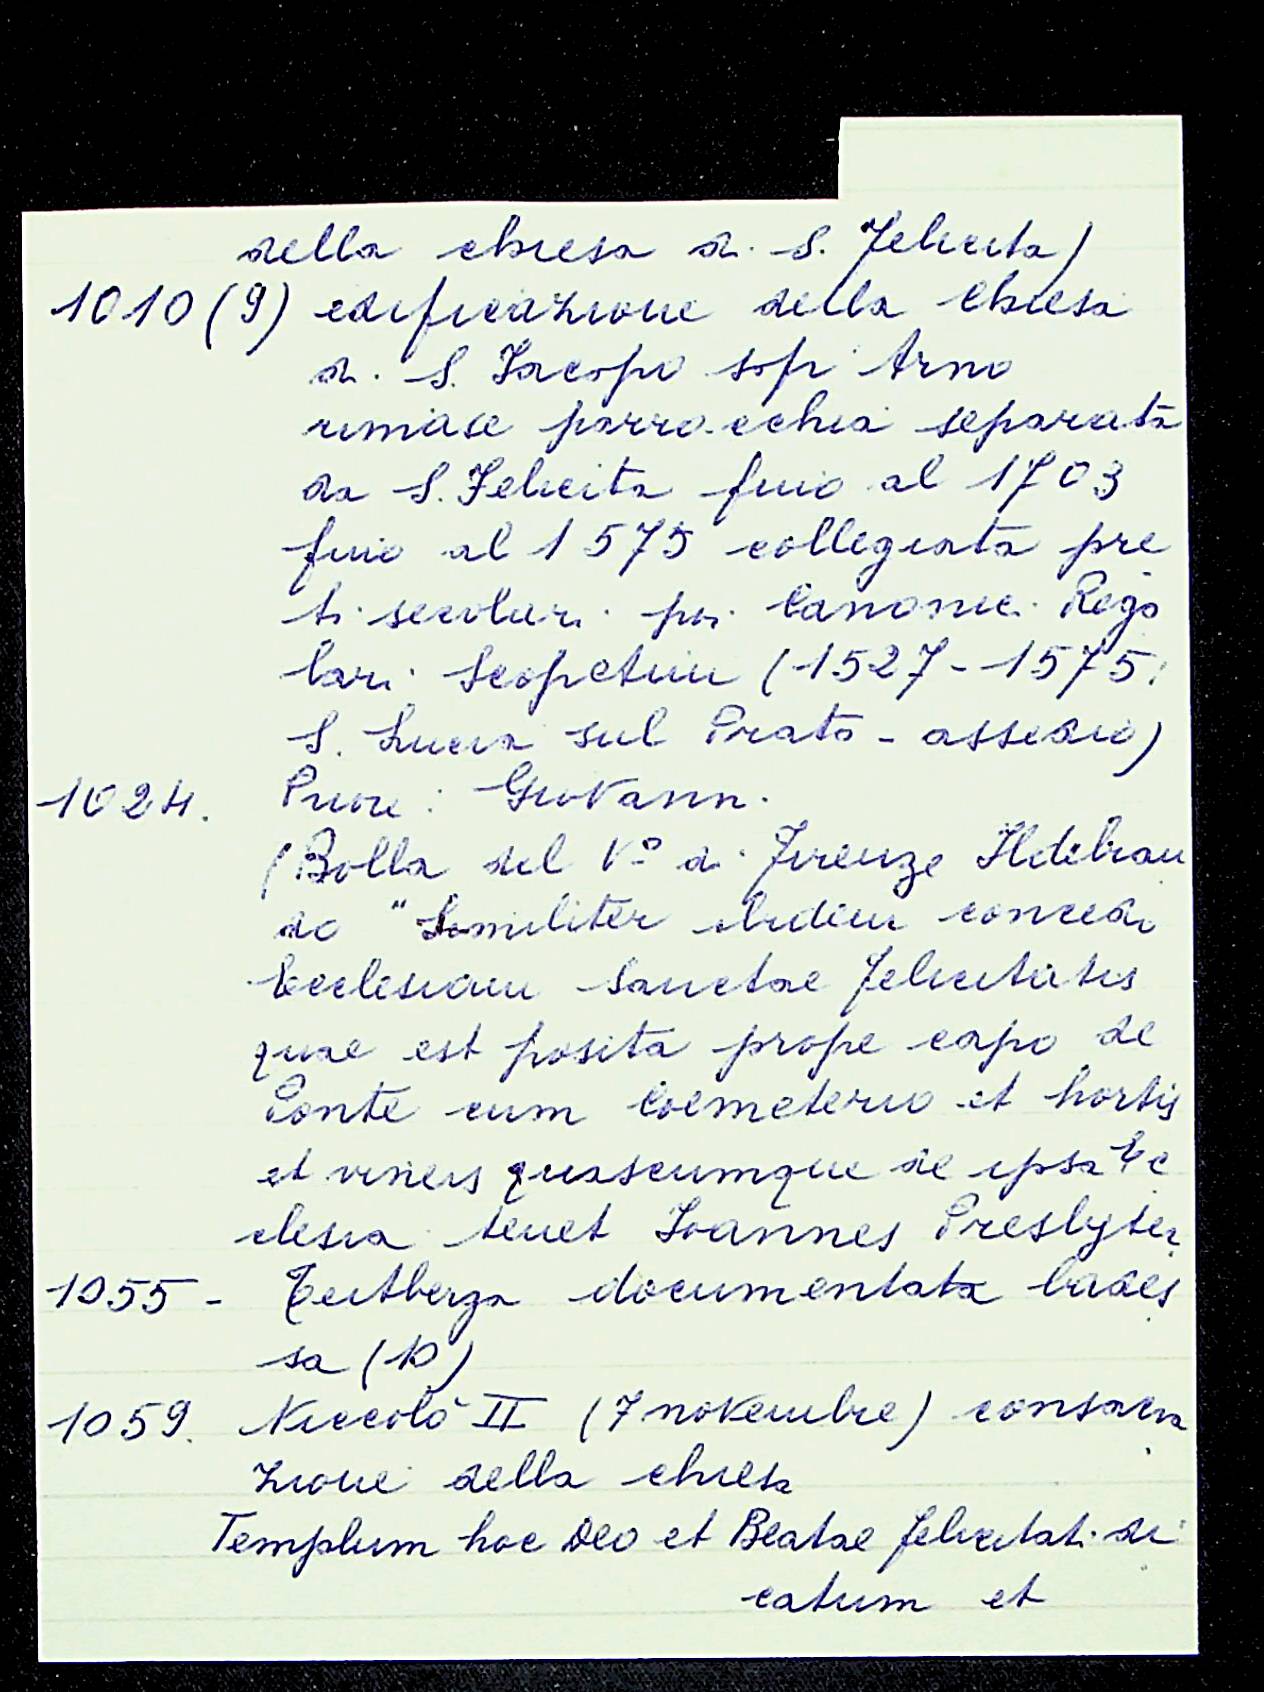 della chiesa di S. Felicita)
1010 (9) edificazione della Chiesa
di S. Jacopo sopr Arno
rimase parrocchia separata
da S. Felicita fino al 1703
fino al 1575 collegiata pre
ti secolari poi Canonici Rego
lari Scopetini (1527-1575:
S. Lucia sul Prato - assedio)
1024. Priore: Giovanni
(Bolla del Vº di Firenze Ildebran
do "Similiter ibidem concedi
Ecclesiam Sanctae Felicitatis
quae est posita prope capo de
Ponte cum Coemeterio et hortis
et vineis quascumque de ipsa Ec
clesia tenet Joannes Presbyter
1055 - Teutberga documentata bades
sa (10)
1059. Niccolò II (7 novembre) consacra
zione della chiesa
Templum hoc Deo et Beatae Felicitati di
catum et